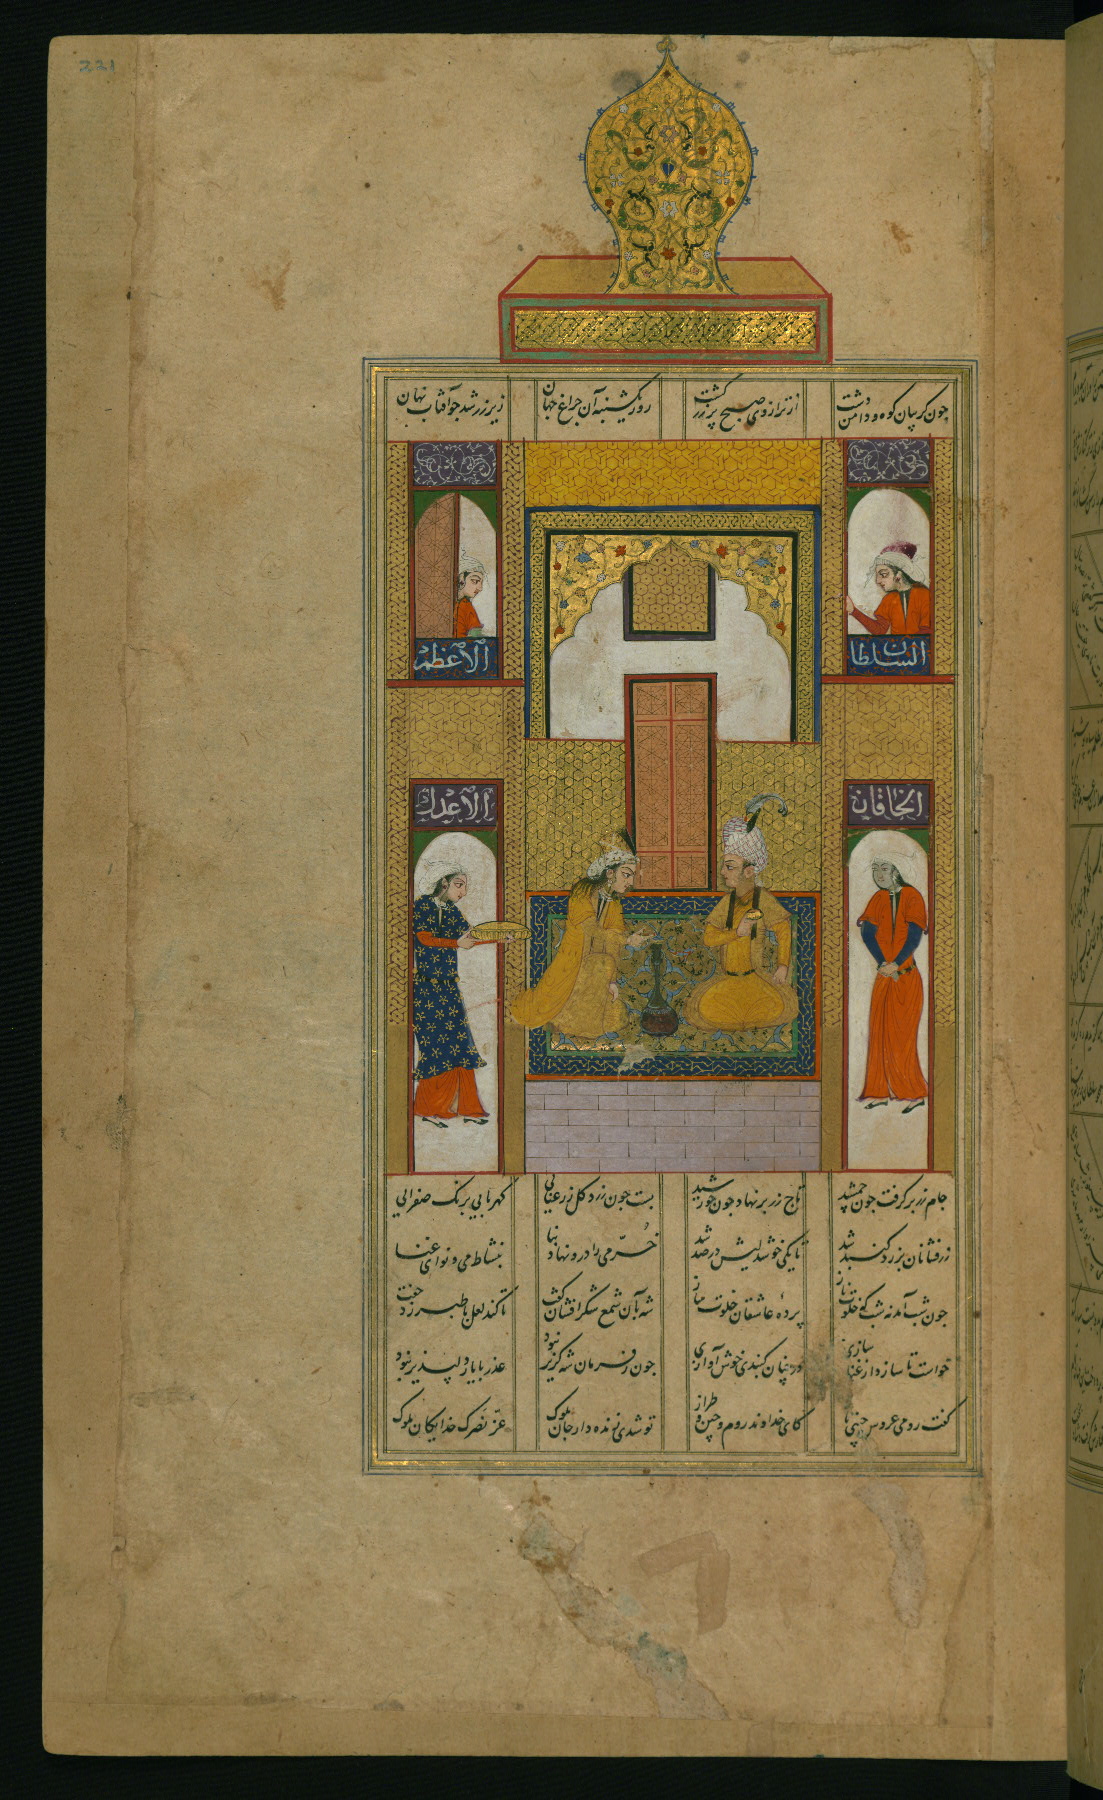 221
چون کریبان کوه و دامن دشت از ترازوی صبح پر زر کشت روز یکشنبه آن چراغ جهان زیر زر شد جو آفتاب نهان
السلطان الاعظم
الخاقان الاعدل
جام زر برکرفت جون جمشید تاج زر بر نهاد جون خورشید بست جون زرد کل ز رعنایی کهربایی برنک صفرایی
زرفشانان بزرد کنبد شد تا یکی خوشدلیش در صد شد خرّمی را درو نهاد بنا بنشاط می و نوای غنا
جون شب آمد نه شب که خلوت ناز پردهٔ عاشقان خلوت ساز شه بآن شمع شکر افشان کفت تا کند لعل با طبرزد جفت
خواست تا سازد از غنا سازی درجنان کنبدی خوش آوازی جون ز فرمان شه کزیر نبود عذر با یار دلپذیر نبود
کفت رومی عروس چینی باز کای خداوند روم و چین و طراز تو شدی زنده دار جان ملوک عزّ نصرک خدایکان ملوک